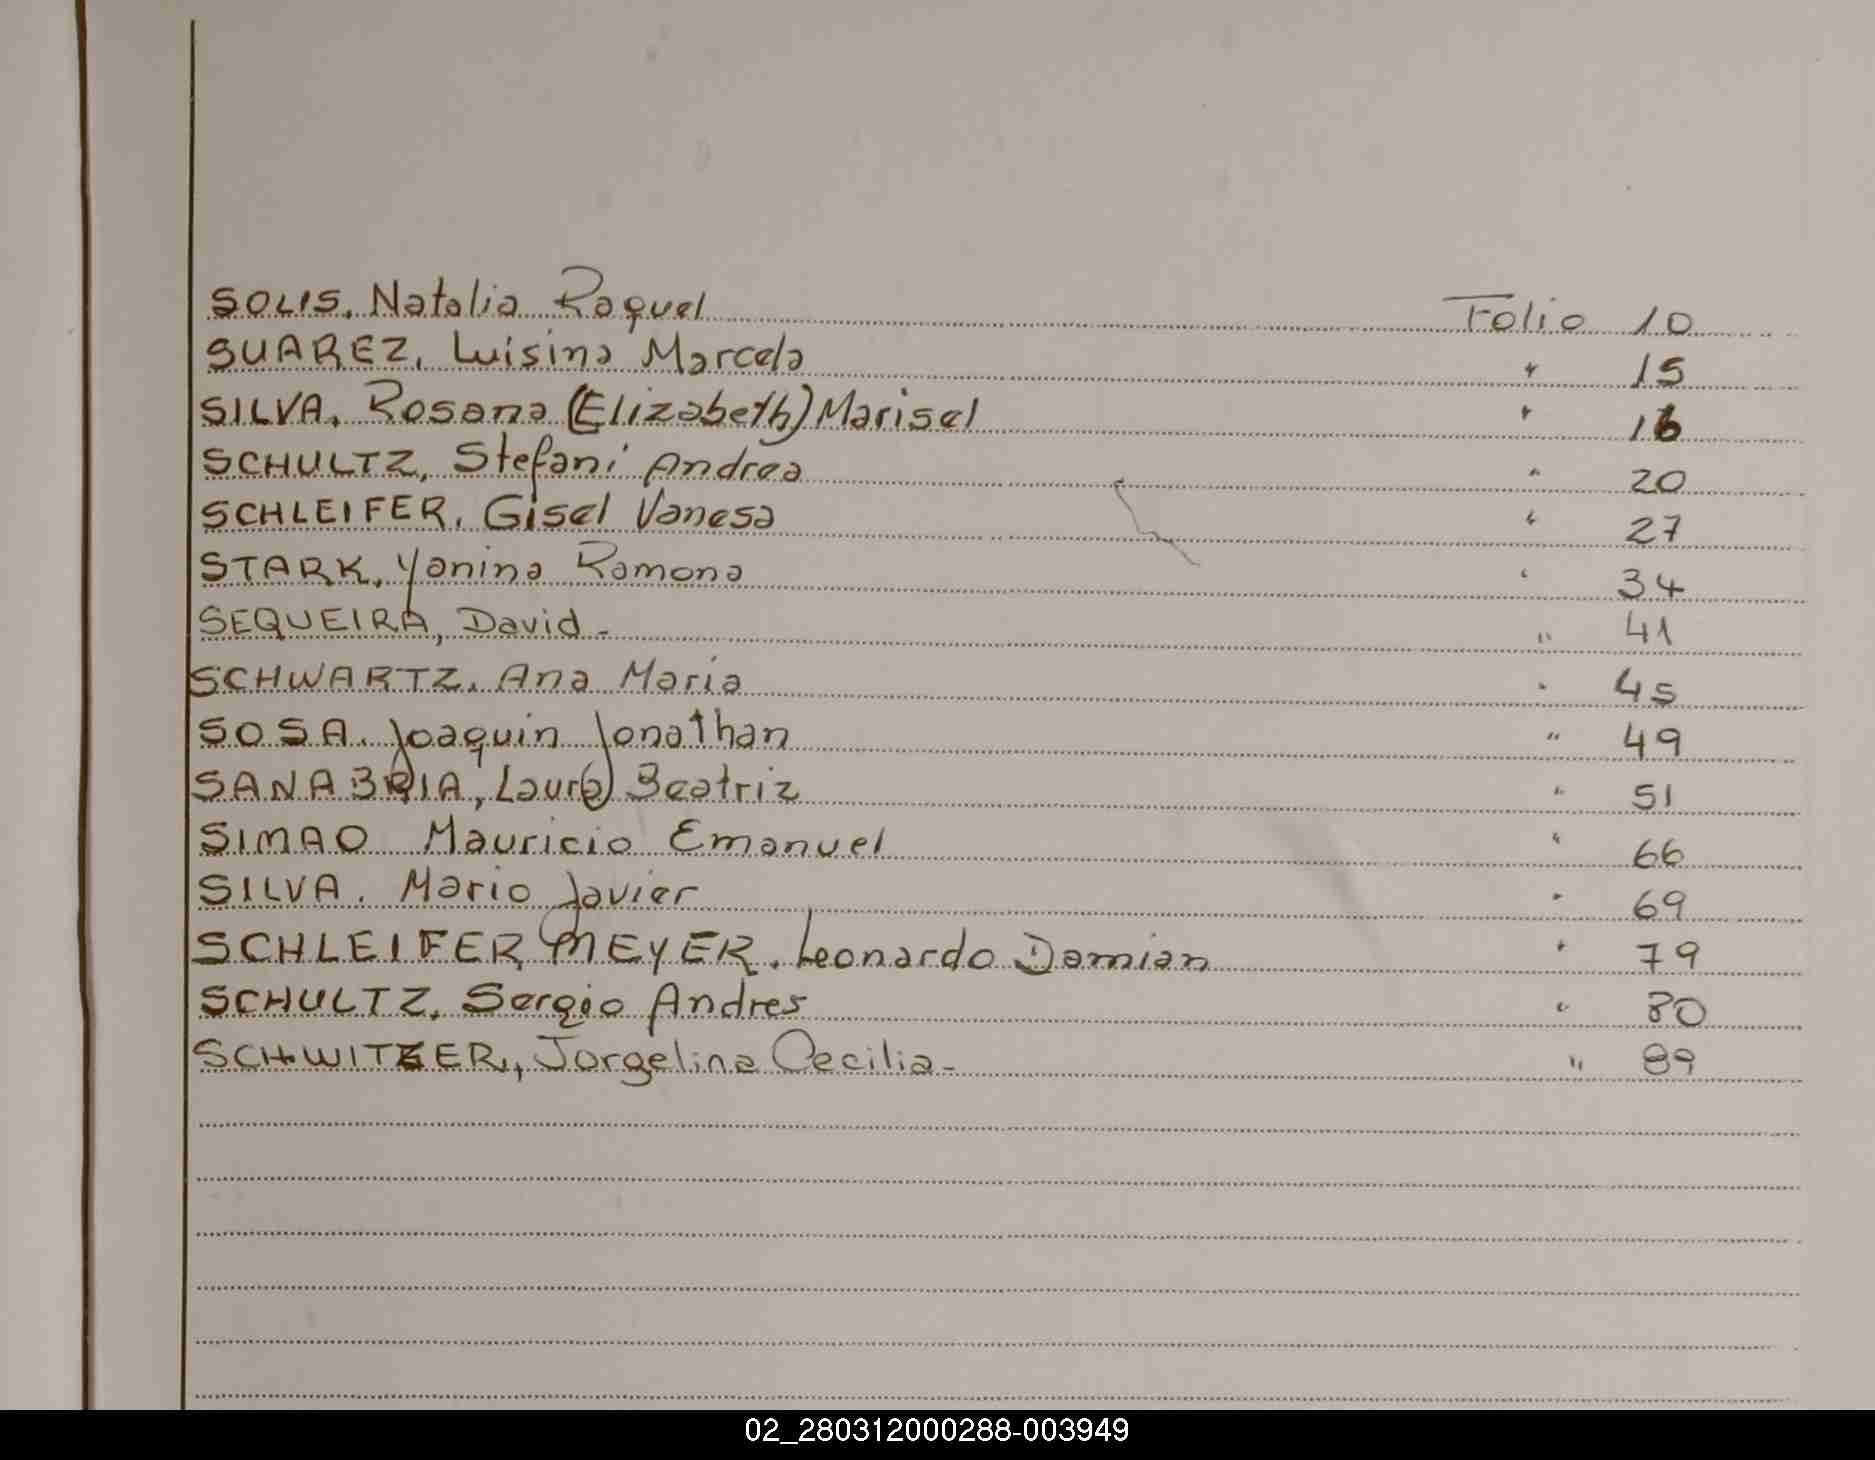 SOLIS, Natalia Raquel Folio 10
SUAREZ, Luisina Marcela " 15
SILVA, Rosana (Elizabeth) Marisel " 16
SCHULTZ, Stefani Andrea " 20
SCHLEIFER, Gisel Vanesa " 27
STARK, Yanina Ramona " 34
SEQUEIRA, David - " 41
SCHWARTZ, Ana Maria " 45
SOSA, Joaquin Jonathan " 49
SANABRIA, Laura Beatriz " 51
SIMAO Mauricio Emanuel " 66
SILVA, Mario Javier " 69
SCHLEIFER MEYER, Leonardo Damian " 79
SCHULTZ, Sergio Andres " 80
SCHWITZER, Jorgelina Cecilia - " 89
02_280312000288-003949